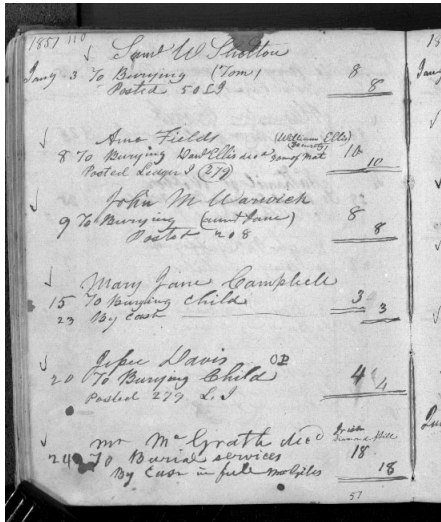 1857 110
Saml W Shelton
Jany 3 To Burying (Tom) 8
Posted 50 L I 8
Ama Fields (William Ellis)
8 To Burying Danl Ellis decd 10
Posted Ledger I (279) 10
John M Warwick
9 To Burying (aunt Jane) 8
Posted 208 8
Mary Jane Campbell
15 To Burying child 3
23 By Cash 3
Jesse Davis OP
20 To Burying Child 4
Posted 279 L. I 4
Mr McGrath decd Irish
24 To Burial services 18
By Cash in full 18
57